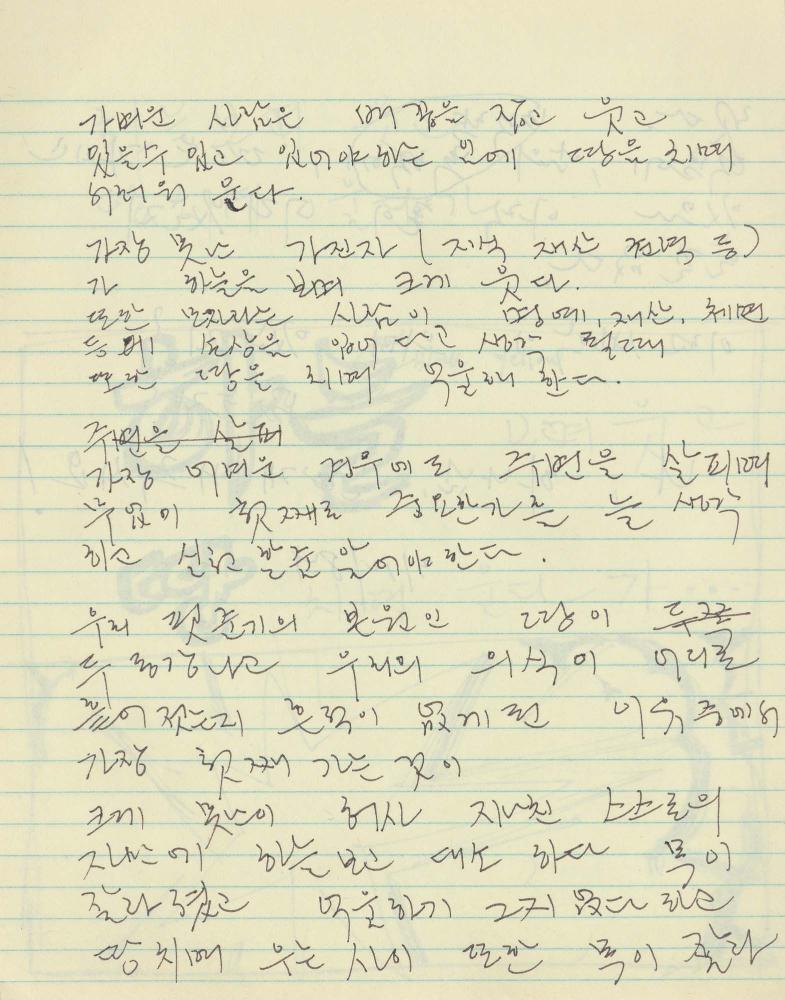 가벼운 사람은 배꼽을 잡고 웃고
있을수 있고 있어야 하는 일에 땅을 치며
서러워 운다.
가장 못난 가진자 (지식 재산 권력 등)
가 하늘을 보며 크게 웃다.
또한 모자라는 사람이 명예, 재산, 체면
등에 손상을 입었다고 생각 될때
또한 땅을 치며 억울해 한다.
주변을 살펴
가장 어려운 경우에도 주변을 살피며
무엇이 첫째로 중요한가를 늘 생각
하고 실천 할줄 알어야 한다.
우리 핏줄기의 본원인 땅이
두 동강나고 우리의 의식이
흩어 젓는지 흔적이 없게된 이유 중에서
가장 첫째 가는 것이
크게 못난이 허사 지나친 스스로의
자만에 하늘보고 대소 하다 목이
잘라졌고 억울하기 그지 없다 하고
땅치며 우는 사이 또한 목이 잘라